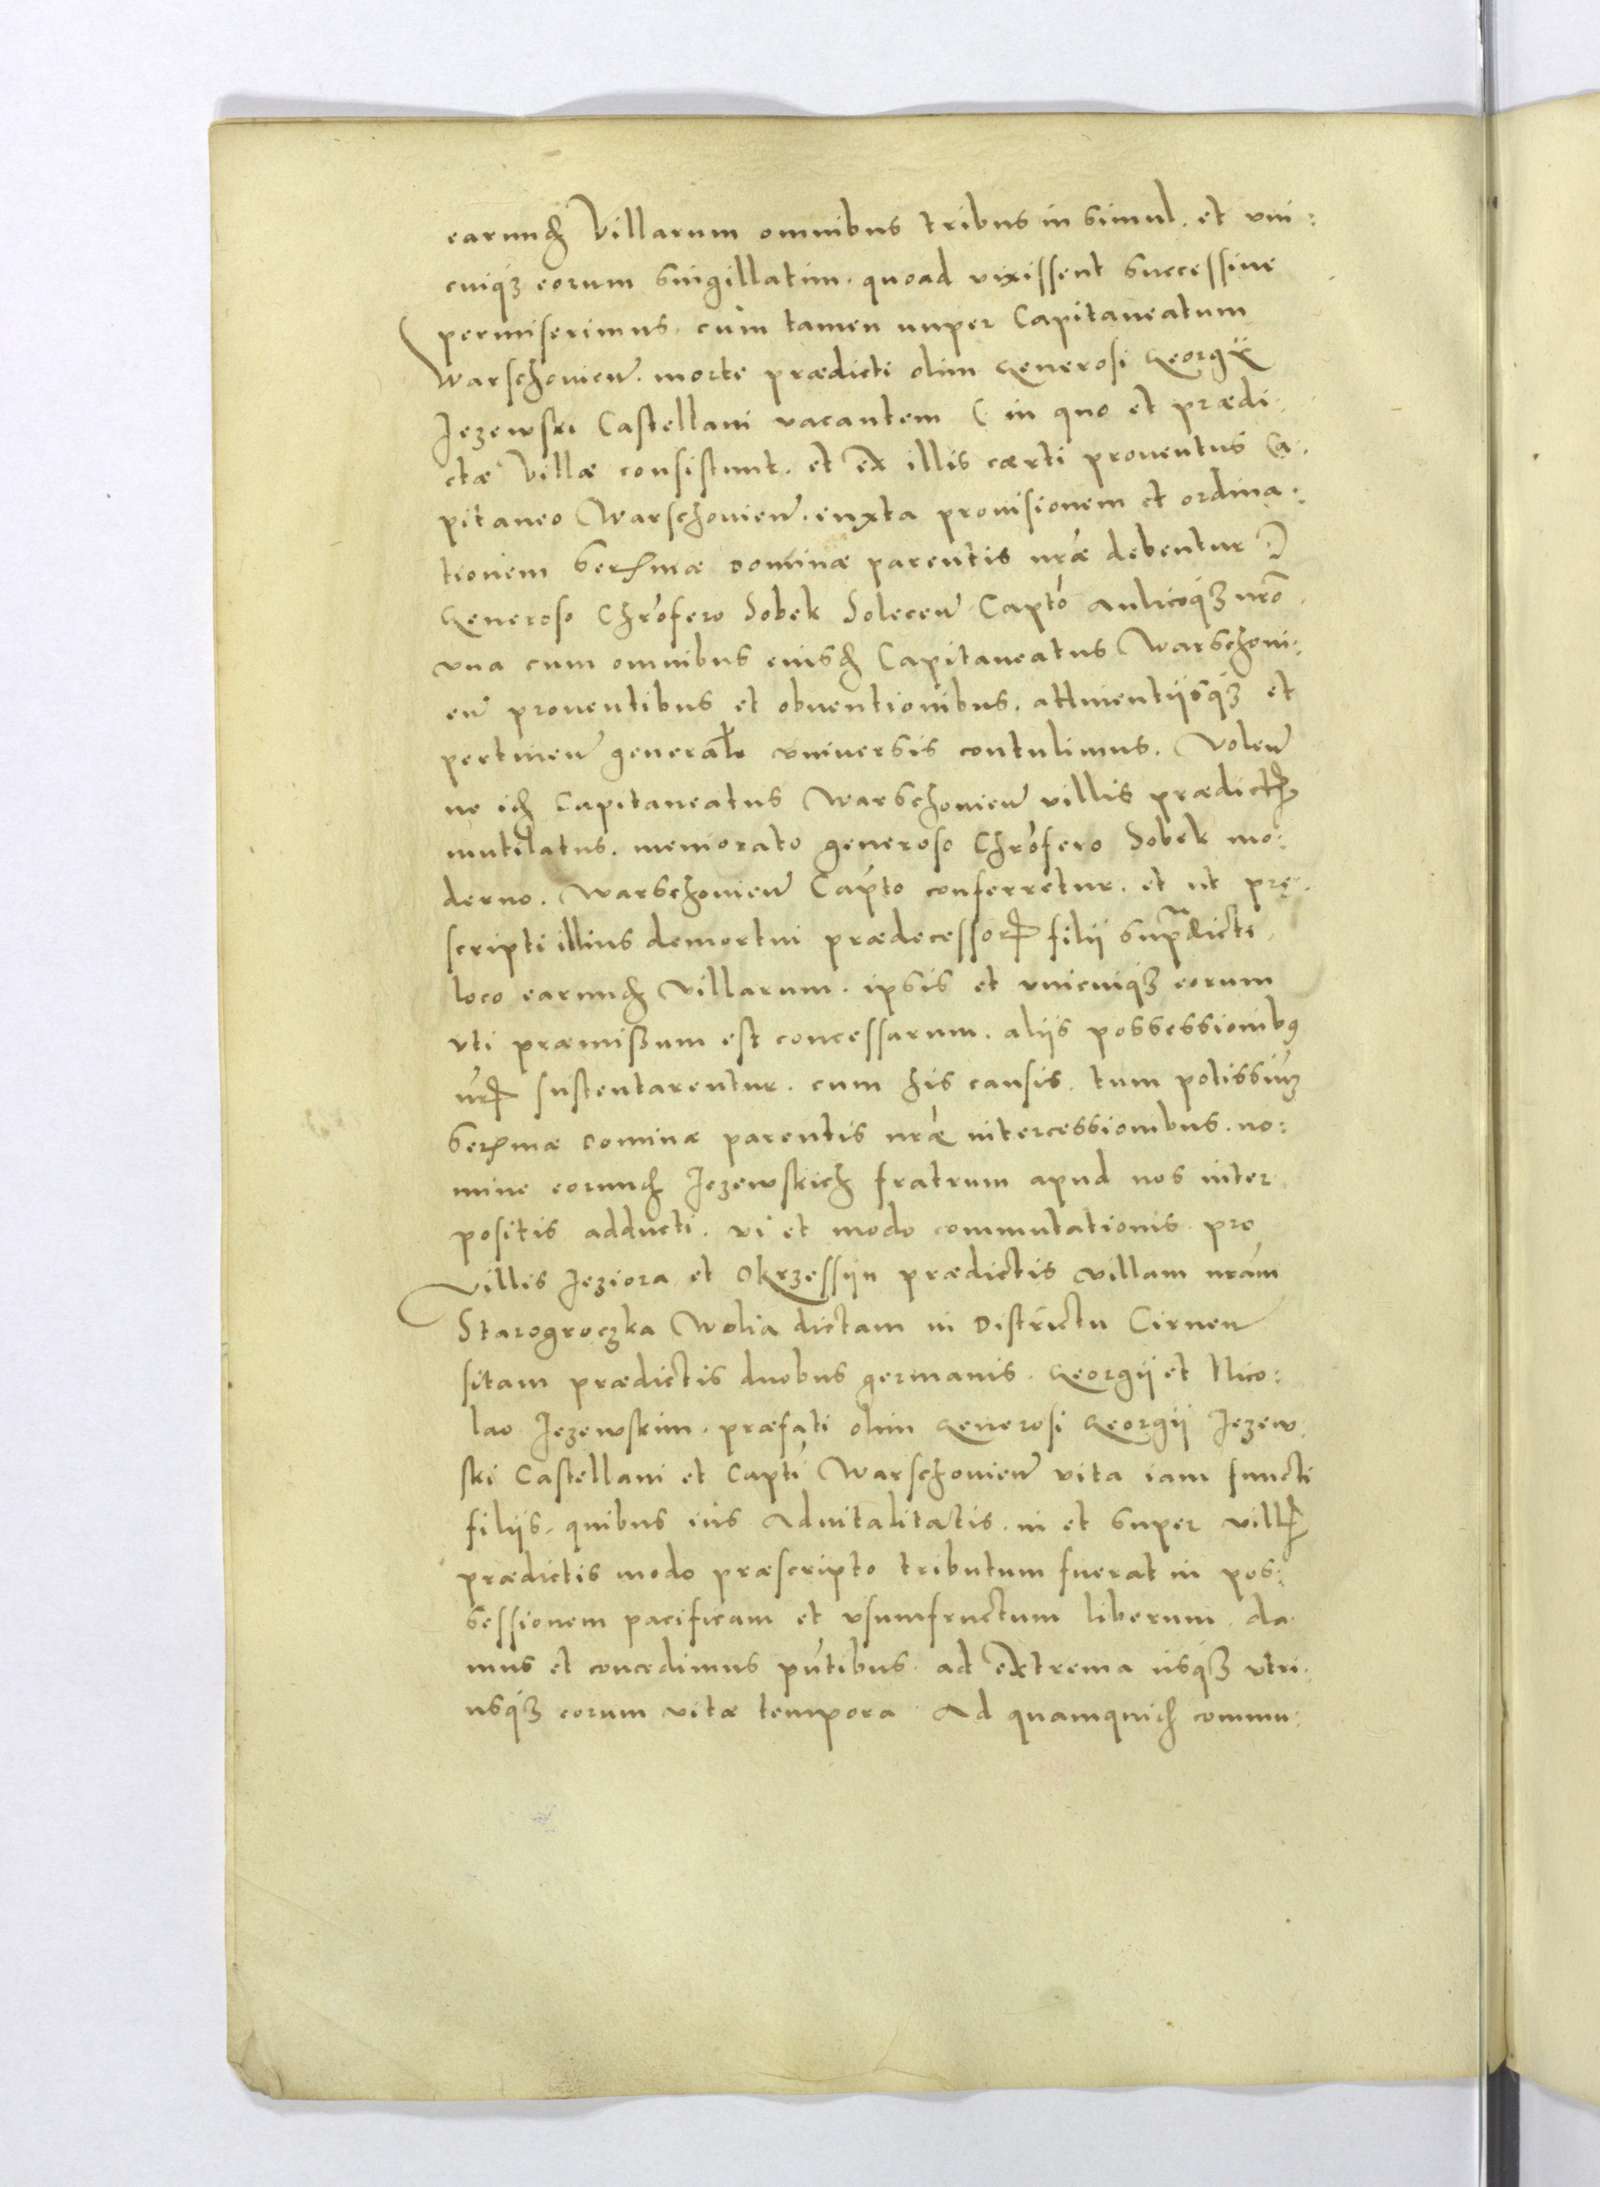 earundem Villarum omnibus tribus in simul. et uni:
cuiq3 eorum singillatim. quoad vixissent successive
permiserimus. cum tamen nuper Capitaneatum
Warschovien̄. morte prædicti olim Generosi Georgii
Jezewski Castellani vacantem (in quo et prædi:
ctæ Villæ consistunt. et ex illis cærti proventus Ca:
pitaneo Warschovien̄. iuxta provisionem et ordina:
tionem Serꝫmæ Dominæ parentis nrǣ debentur)
Generoso Chrōfero Sobek Solecen̄ Captō aulicoq3 nrō
una cum omnibus eiusdem Capitaneatus Warschovi:
en̄ proventibus et obventionibus. attinentiisq3 et
pertinen̄ general̄r universis contulimus. Volen̄
ne idem Capitaneatus Warschovien̄ villis prædictis
mutilatus. memorato generoso Chrōfero Sobek mo:
derno. Warschovien̄ Capto conferretur. et ut præ:
scripti illius demortui prædecessoris filii supradicti.
loco earundem Villarum. ipsis et unicuiq3 eorum
uti præmissum est concessarum. aliis possessionibꝰ
nr̄is sustentarentur. cum his causis. tum potissimū
Serꝫmæ Dominæ parentis nrǣ intercessionibus. no:
mine eorundem Jezewskich fratrum apud nos inter
positis adducti. vi et modo commutationis. pro
Villis Jeziora et Okrzessijn prædictis villam nram̄
Starogroczka Wolia dictam in Districtu Cirnen̄
sitam prædictis duobus germanis. Georgii et Nico:
lao Jezewskim. præfati olim Generosi Georgii Jezew
ski Castellani et Capti Warschovien̄ vita iam functi
filiis. quibus ius Advitalitatis. in et super villis
prædictis modo præscripto tributum fuerat in pos:
sessionem pacificam et usumfructum liberum. da
mus et concedimus pn̄tibus. ad extrema usq3 utri:
usq3 eorum vitæ tempora. Ad quamquidem commu: